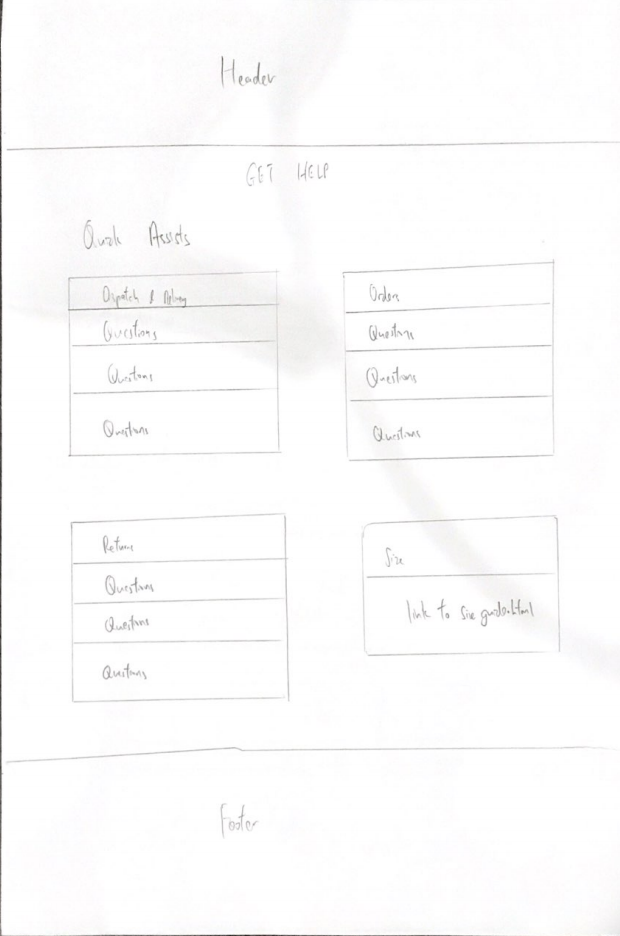 Header
GET HELP
Quick Assists
Dispatch & Delivery
Questions
Questions
Questions
Orders
Questions
Questions
Questions
Returns
Questions
Questions
Questions
Size
link to size guide.html
Footer